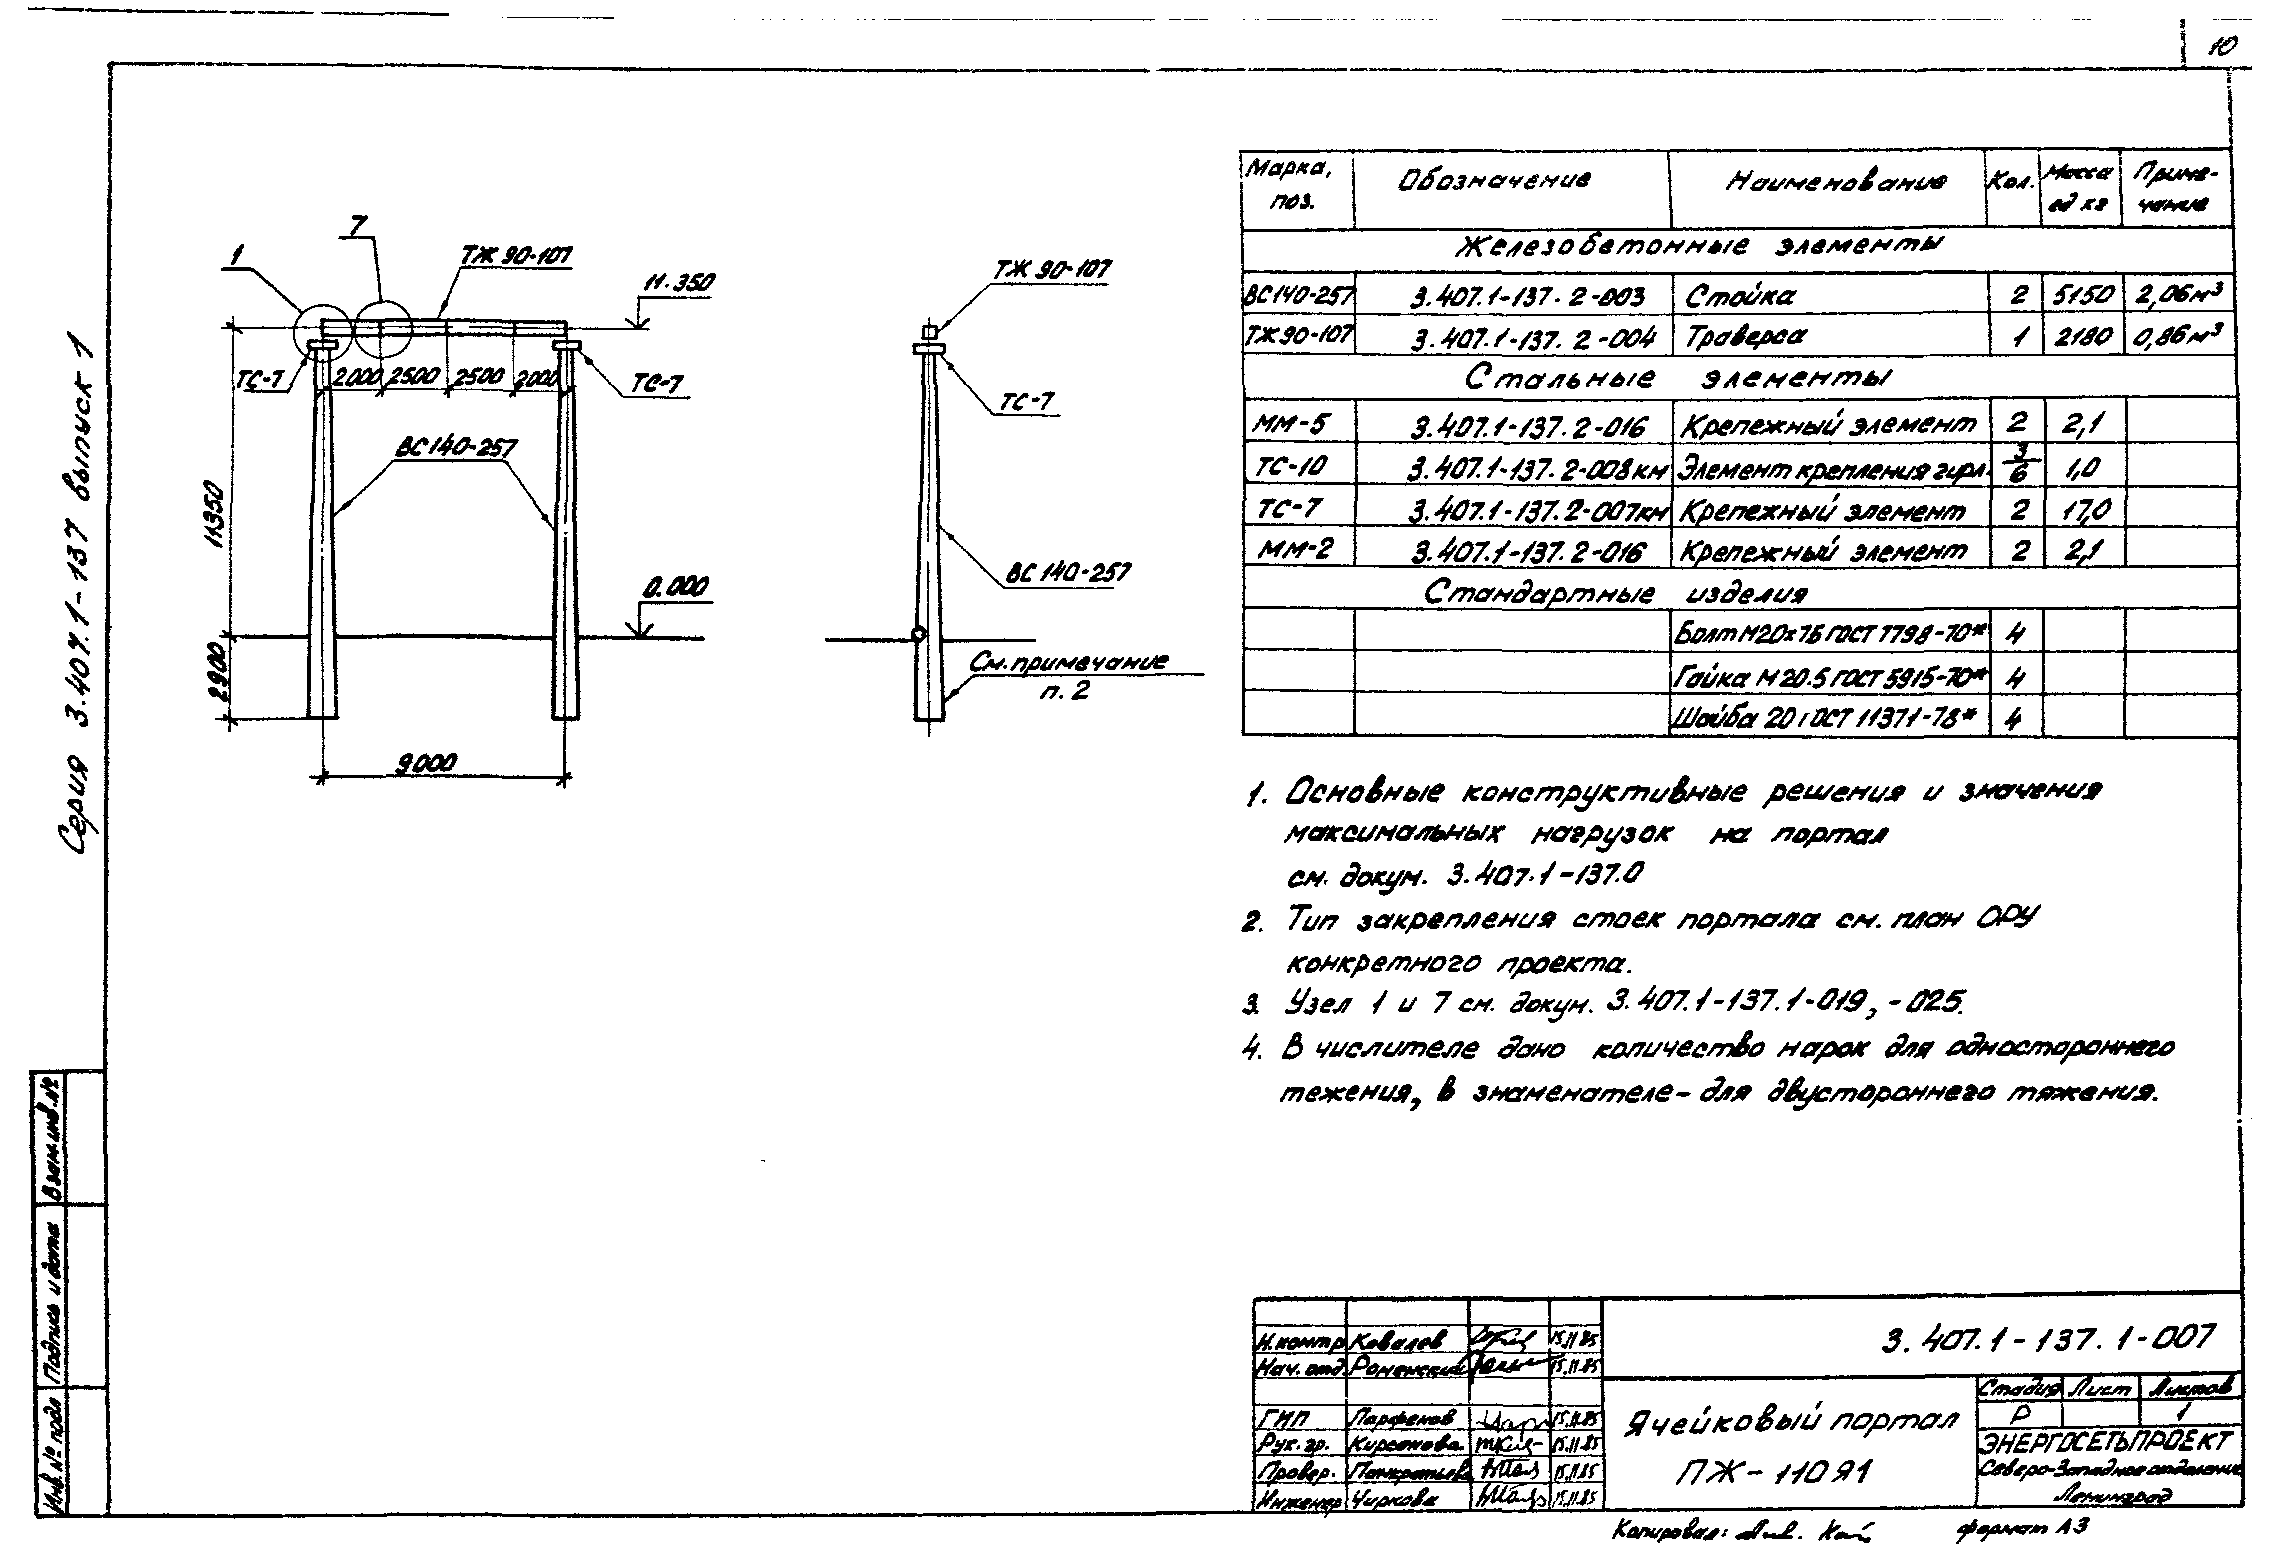 10
Серия 3.407.1-137 выпуск 1
1
7
ТЖ 90-107
11.350
ТС-7
2000
2500
2500
2000
ТС-7
ВС140-257
11350
0.000
2900
9000
ТЖ 90-107
ТС-7
ВС 140-257
См. примечание
п. 2
Марка, поз. Обозначение Наименование Кол. Масса ед кг Приме-чание
Железобетонные элементы
ВС140-257 3.407.1-137.2-003 Стойка 2 5150 2,06м³
ТЖ90-107 3.407.1-137.2-004 Траверса 1 2180 0,86м³
Стальные элементы
ММ-5 3.407.1-137.2-016 Крепежный элемент 2 2,1
ТС-10 3.407.1-137.2-008км Элемент крепления гирл. 3/6 1,0
ТС-7 3.407.1-137.2-007км Крепежный элемент 2 17,0
ММ-2 3.407.1-137.2-016 Крепежный элемент 2 2,1
Стандартные изделия
Болт М20х75 ГОСТ 7798-70* 4
Гайка М20.5 ГОСТ 5915-70* 4
Шайба 20 ГОСТ 11371-78* 4
1. Основные конструктивные решения и значения
максимальных нагрузок на портал
см. докум. 3.407.1-137.0
2. Тип закрепления стоек портала см. план ОРУ
конкретного проекта.
3. Узел 1 и 7 см. докум. 3.407.1-137.1-019, -025.
4. В числителе дано количество марок для одностороннего
тежения, в знаменателе - для двустороннего тяжения.
Взам. инв. №
Подпись и дата
Инв. № подл
Н.контр Ковалов 15.11.85
Нач. отд. Роменский 15.11.85
ГИП Парфенов 15.11.85
Рук. гр. Кирсанова 15.11.85
Провер. Панкратьева 15.11.85
Инженер Чиркова 15.11.85
3.407.1-137.1-007
Ячейковый портал
ПЖ-110Я1
Стадия Лист Листов
Р 1
ЭНЕРГОСЕТЬПРОЕКТ
Северо-Западное отделение
Ленинград
Копировал:
формат А3